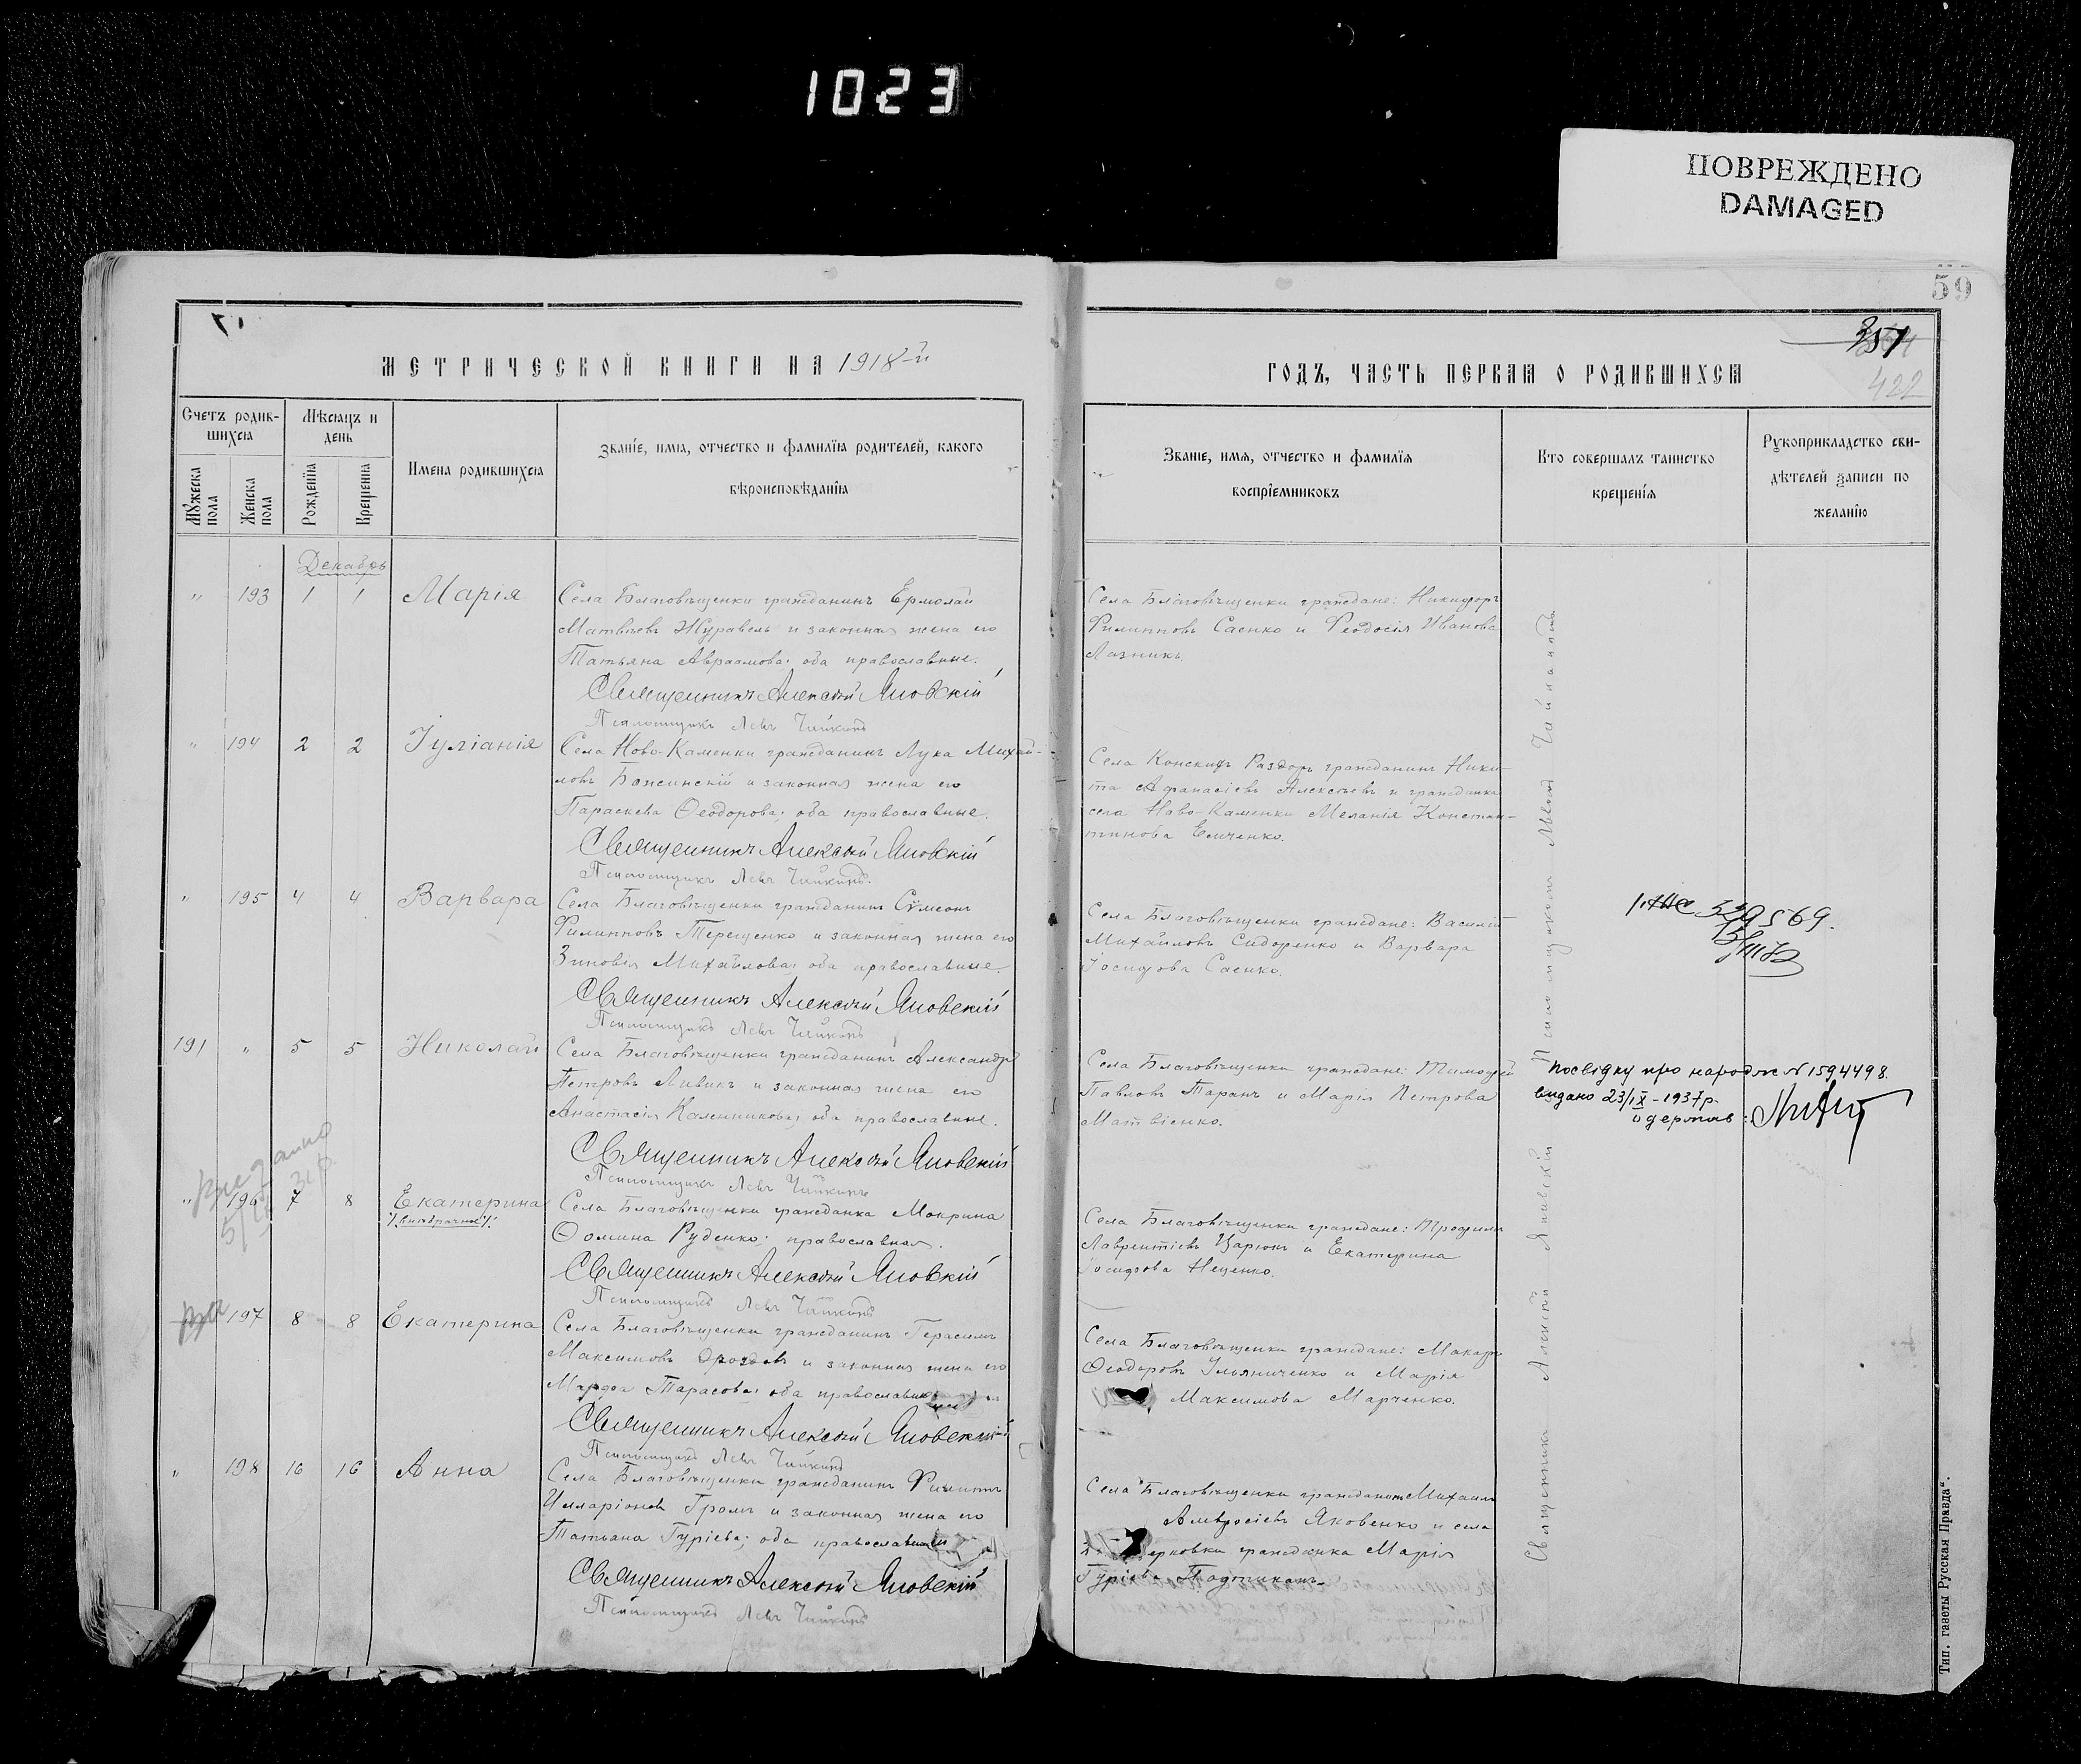 1023
ПОВРЕЖДЕНО
DAMAGED
59
МЕТРИЧЕСКОЙ КНИГИ НА 1918-й
ГОДЪ, ЧАСТЬ ПЕРВАЯ О РОДИВШИХСЯ
351
422
Счетъ родив-
шихся
Мѣсяцъ и
день
Мужеска
пола
Женска
пола
Рожденїя
Крещенїя
Имена родившихся
Званїе, имя, отчество и фамилїя родителей, какого
вѣроисповѣданїя
Званїе, имя, отчество и фамилїя
воспрїемниковъ
Кто совершалъ таинство
крещенїя
Рукоприкладство сви-
дѣтелей записи по
желанїю
Декабрь
" 193 1 1 Марія
Села Благовѣщенки гражданинъ Ермолай
Матвѣевъ Журавель и законная жена его
Татьяна Авраамова; оба православные.
Священникъ Алексѣй Яновскій
Псаломщикъ Левъ Чайкинъ
Села Благовѣщенки граждане: Никифоръ
Филипповъ Саенко и Феодосія Иванова
Лазникъ.
" 194 2 2 Іуліанія
Села Ново-Каменки гражданинъ Лука Михай-
ловъ Божинскій и законная жена его
Параскева Ѳеодорова; оба православные.
Священникъ Алексѣй Яновскій
Псаломщикъ Левъ Чайкинъ.
Села Конскихъ Раздоръ гражданинъ Ники-
та Афанасіевъ Алексѣевъ и гражданка
села Ново-Каменки Меланія Констан-
тинова Емченко.
" 195 4 4 Варвара
Села Благовѣщенки гражданинъ Сѵмеонъ
Филипповъ Терещенко и законная жена его
Зиновія Михайлова; оба православные.
Священникъ Алексѣй Яновскій
Псаломщикъ Левъ Чайкинъ
Села Благовѣщенки граждане: Василій
Михайловъ Сидоренко и Варвара
Іосифова Саенко.
191 " 5 5 Николай
Села Благовѣщенки гражданинъ Александръ
Петровъ Ливикъ и законная жена его
Анастасія Калинникова; оба православные.
Священникъ Алексѣй Яновскій
Псаломщикъ Левъ Чайкинъ
Села Благовѣщенки граждане: Тимофей
Павловъ Таранъ и Марія Петрова
Матвіенко.
Посвідку про народж N 1594498.
видано 23/IX-1937р.
одержав:
" 196 7 8 Екатерина
/внѣбрачная/
Села Благовѣщенки гражданка Макрина
Ѳомина Руденко; православная.
Священникъ Алексѣй Яновскій
Псаломщикъ Левъ Чайкинъ
Села Благовѣщенки граждане: Трофимъ
Лаврентіевъ Царюкъ и Екатерина
Іосифова Неценко.
197 8 8 Екатерина
Села Благовѣщенки гражданинъ Герасимъ
Максимовъ Дроздовъ и законная жена его
Марфа Тарасова; оба православные
Священникъ Алексѣй Яновскій
Псаломщикъ Левъ Чайкинъ
Села Благовѣщенки граждане: Макаръ
Ѳеодоровъ Ильяниченко и Марія
Максимова Марченко.
" 198 16 16 Анна
Села Благовѣщенки гражданинъ Филиппъ
Илларіоновъ Громъ и законная жена его
Татьана Гуріева; оба православные
Священникъ Алексѣй Яновскій
Псаломщикъ Левъ Чайкинъ
Села Благовѣщенки гражданинъ Михаилъ
Амвросіевъ Яковенко и села
гражданка Марія
Гуріева
Священникъ Алексѣй Яновскій Псаломщикъ Левъ Чайкинъ
Тип. газеты „Русская Правда“.